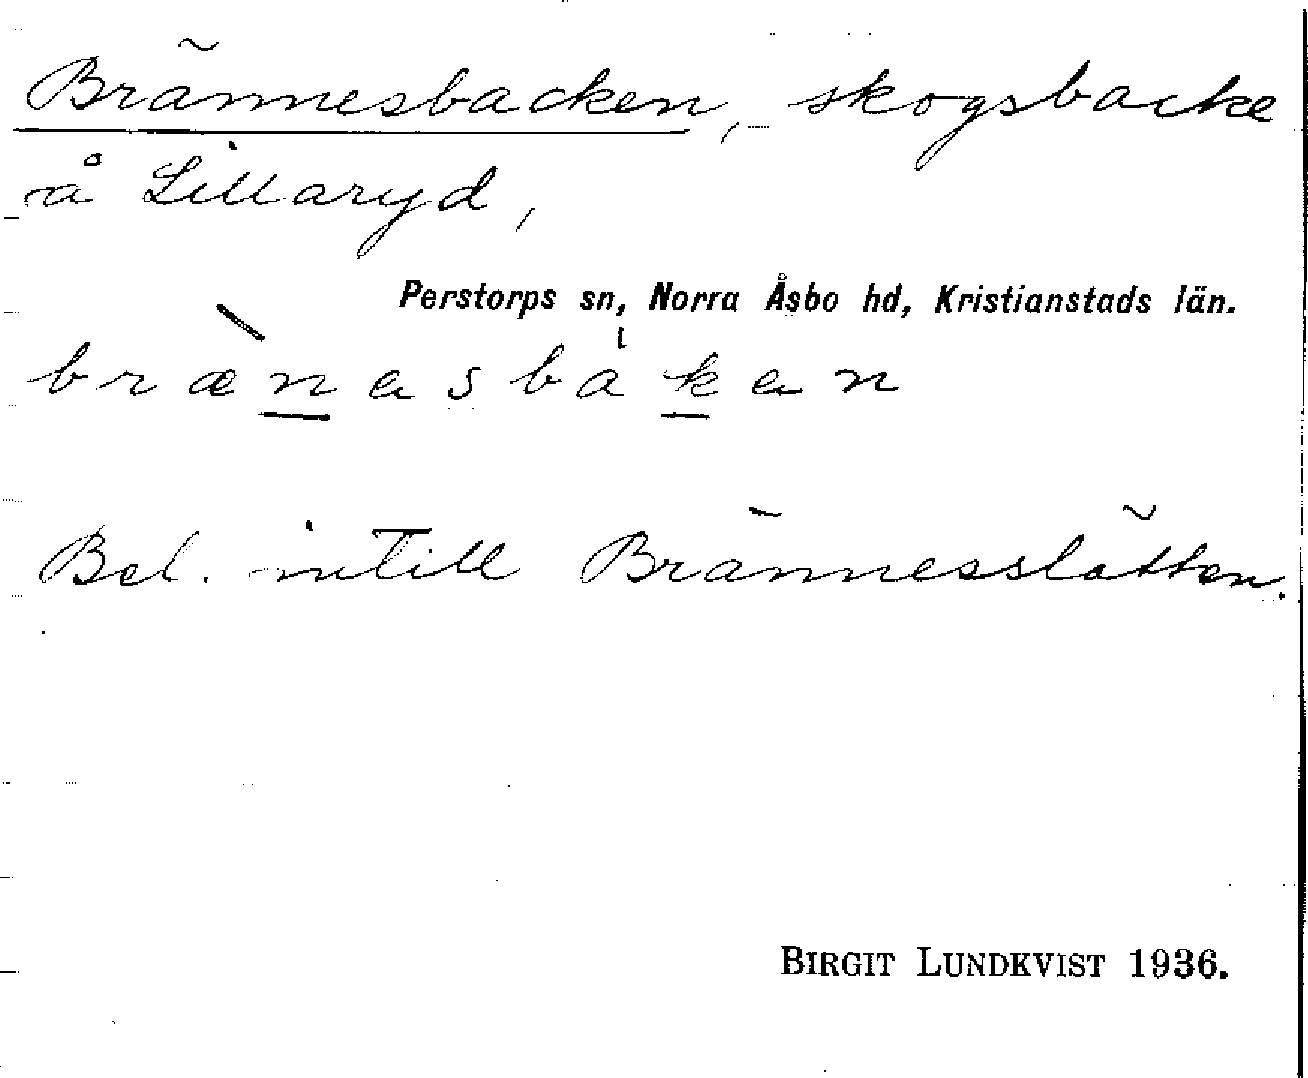 Brännesbacken, skogsbacke
å Lillaryd,
Perstorps sn, Norra Åsbo hd, Kristianstads län.
bræ̀nəsbákən
Bel. intill Brännesslätten.
BIRGIT LUNDKVIST 1936.